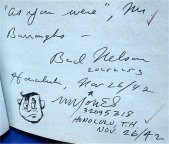 "as you were", Mr
Burroughs –
Bud Nelson
Honolulu, Nov 26/42
M JONES
32095318
HONOLULU, T.H.
NOV. 26/42